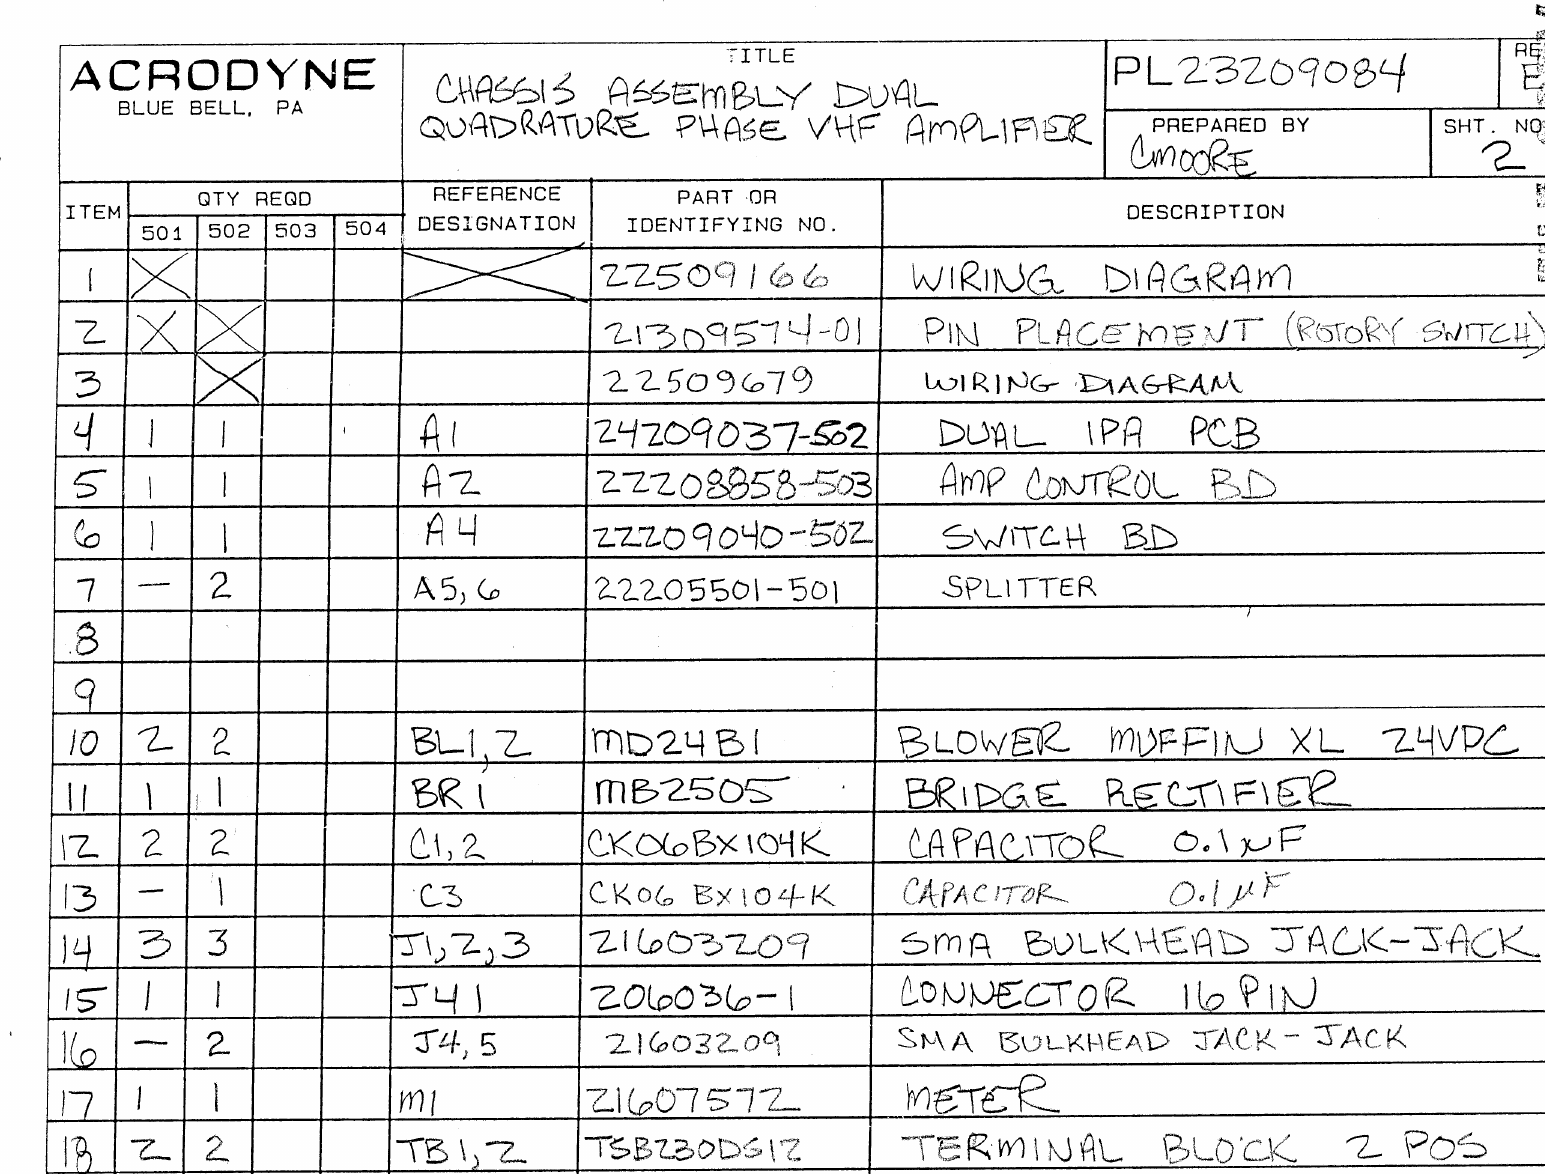 ACRODYNE
BLUE BELL, PA
TITLE
CHASSIS ASSEMBLY DUAL
QUADRATURE PHASE VHF AMPLIFIER
PL23209084
RE
E
PREPARED BY
CMOORE
SHT. NO
2
ITEM
QTY REQD
501 502 503 504
REFERENCE
DESIGNATION
PART OR
IDENTIFYING NO.
DESCRIPTION
1 X 22509166 WIRING DIAGRAM
2 X X 21309574-01 PIN PLACEMENT (ROTORY SWITCH)
3 X 22509679 WIRING DIAGRAM
4 1 1 A1 24209037-502 DUAL IPA PCB
5 1 1 A2 22208858-503 AMP CONTROL BD
6 1 1 A4 22209040-502 SWITCH BD
7 — 2 A5,6 22205501-501 SPLITTER
8
9
10 2 2 BL1,2 MD24B1 BLOWER MUFFIN XL 24VDC
11 1 1 BR1 MB2505 BRIDGE RECTIFIER
12 2 2 C1,2 CK06BX104K CAPACITOR 0.1µF
13 — 1 C3 CK06 BX104K CAPACITOR 0.1µF
14 3 3 J1,2,3 21603209 SMA BULKHEAD JACK-JACK
15 1 1 J41 206036-1 CONNECTOR 16 PIN
16 — 2 J4,5 21603209 SMA BULKHEAD JACK-JACK
17 1 1 M1 21607572 METER
18 2 2 TB1,2 TSB230DS12 TERMINAL BLOCK 2 POS